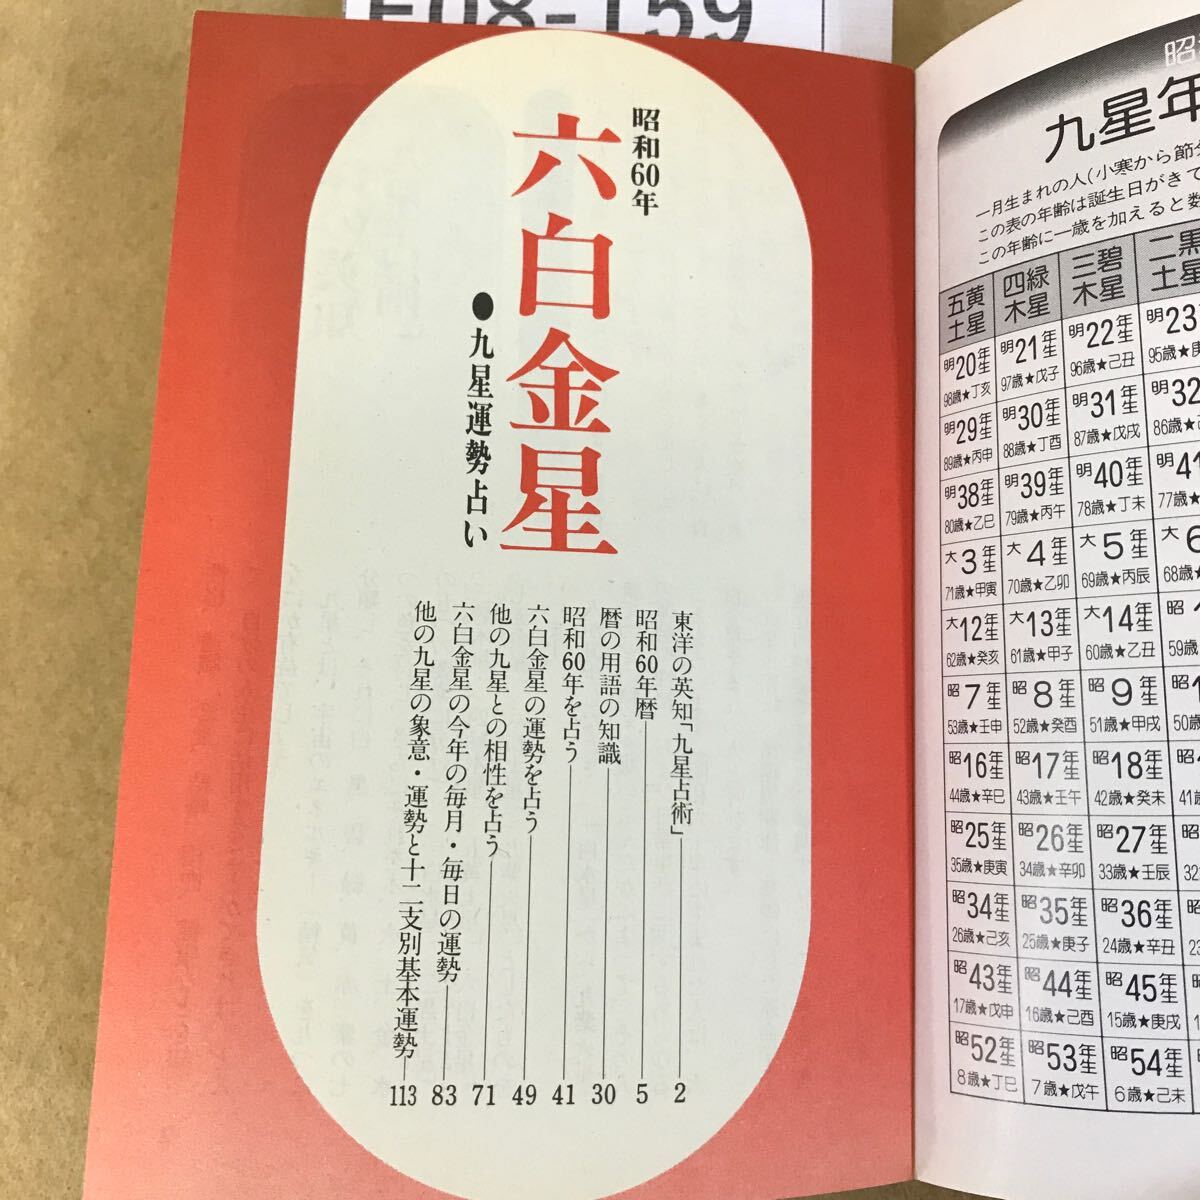 F08-159
昭和60年
六白金星
●九星運勢占い
東洋の英知「九星占術」 2
昭和60年暦 5
暦の用語の知識 30
昭和60年を占う 41
六白金星の運勢を占う 49
他の九星との相性を占う 71
六白金星の今年の毎月・毎日の運勢 83
他の九星の象意・運勢と十二支別基本運勢 113
昭
九星年
一月生まれの人(小寒から節分
この表の年齢は誕生日がきて
この年齢に一歳を加えると数
五黄土星 四緑木星 三碧木星 二黒土星
明20年生 明21年生 明22年生 明23
98歳★丁亥 97歳★戊子 96歳★己丑 95歳★庚
明29年生 明30年生 明31年生 明32
89歳★丙申 88歳★丁酉 87歳★戊戌 86歳★己
明38年生 明39年生 明40年生 明41
80歳★乙巳 79歳★丙午 78歳★丁未 77歳★
大3年生 大4年生 大5年生 大6
71歳★甲寅 70歳★乙卯 69歳★丙辰 68歳★
大12年生 大13年生 大14年生 昭
62歳★癸亥 61歳★甲子 60歳★乙丑 59歳
昭7年生 昭8年生 昭9年生 昭1
53歳★壬申 52歳★癸酉 51歳★甲戌 50歳
昭16年生 昭17年生 昭18年生 昭
44歳★辛巳 43歳★壬午 42歳★癸未 41歳
昭25年生 昭26年生 昭27年生 昭
35歳★庚寅 34歳★辛卯 33歳★壬辰 32
昭34年生 昭35年生 昭36年生 昭
26歳★己亥 25歳★庚子 24歳★辛丑 23
昭43年生 昭44年生 昭45年生
17歳★戊申 16歳★己酉 15歳★庚戌 1
昭52年生 昭53年生 昭54年生
8歳★丁巳 7歳★戊午 6歳★己未